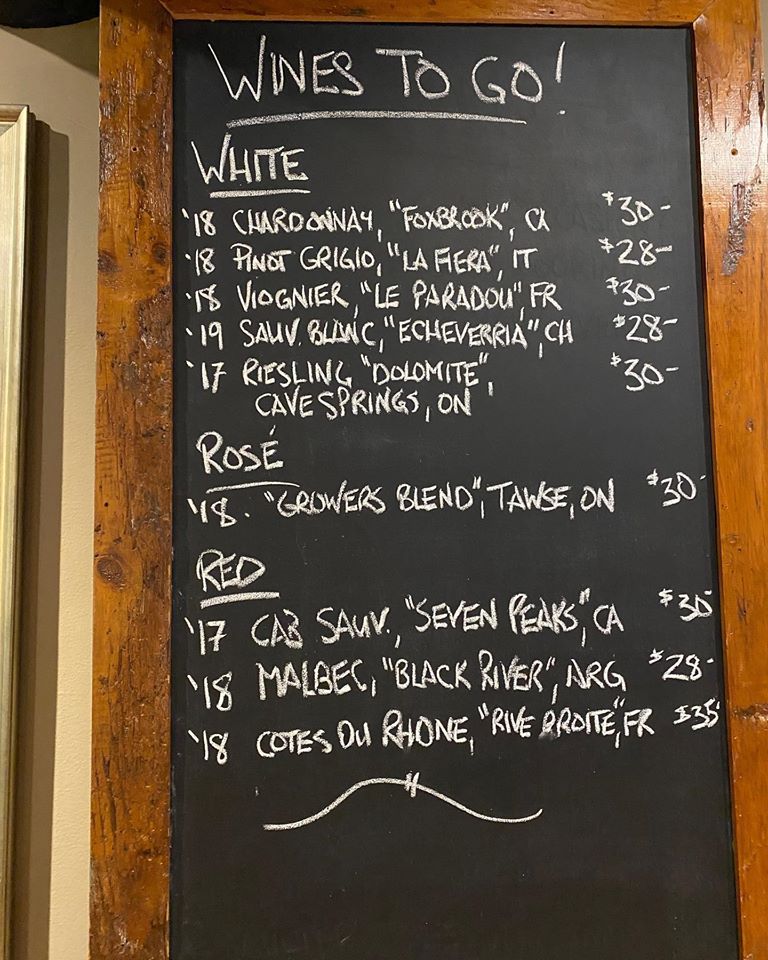 WINES TO GO!
WHITE
'18 CHARDONNAY, "FOXBROOK", CA $30-
'18 PINOT GRIGIO, "LA FIERA", IT $28-
'18 VIOGNIER, "LE PARADOU", FR $30-
'19 SAUV. BLANC, "ECHEVERRIA", CH $28-
'17 RIESLING, "DOLOMITE", $30-
CAVE SPRINGS, ON
ROSÉ
'18. "GROWERS BLEND", TAWSE, ON $30-
RED
'17 CAB SAUV., "SEVEN PEAKS", CA $30-
'18 MALBEC, "BLACK RIVER", ARG $28-
'18 COTES DU RHONE, "RIVE DROITE", FR $35-